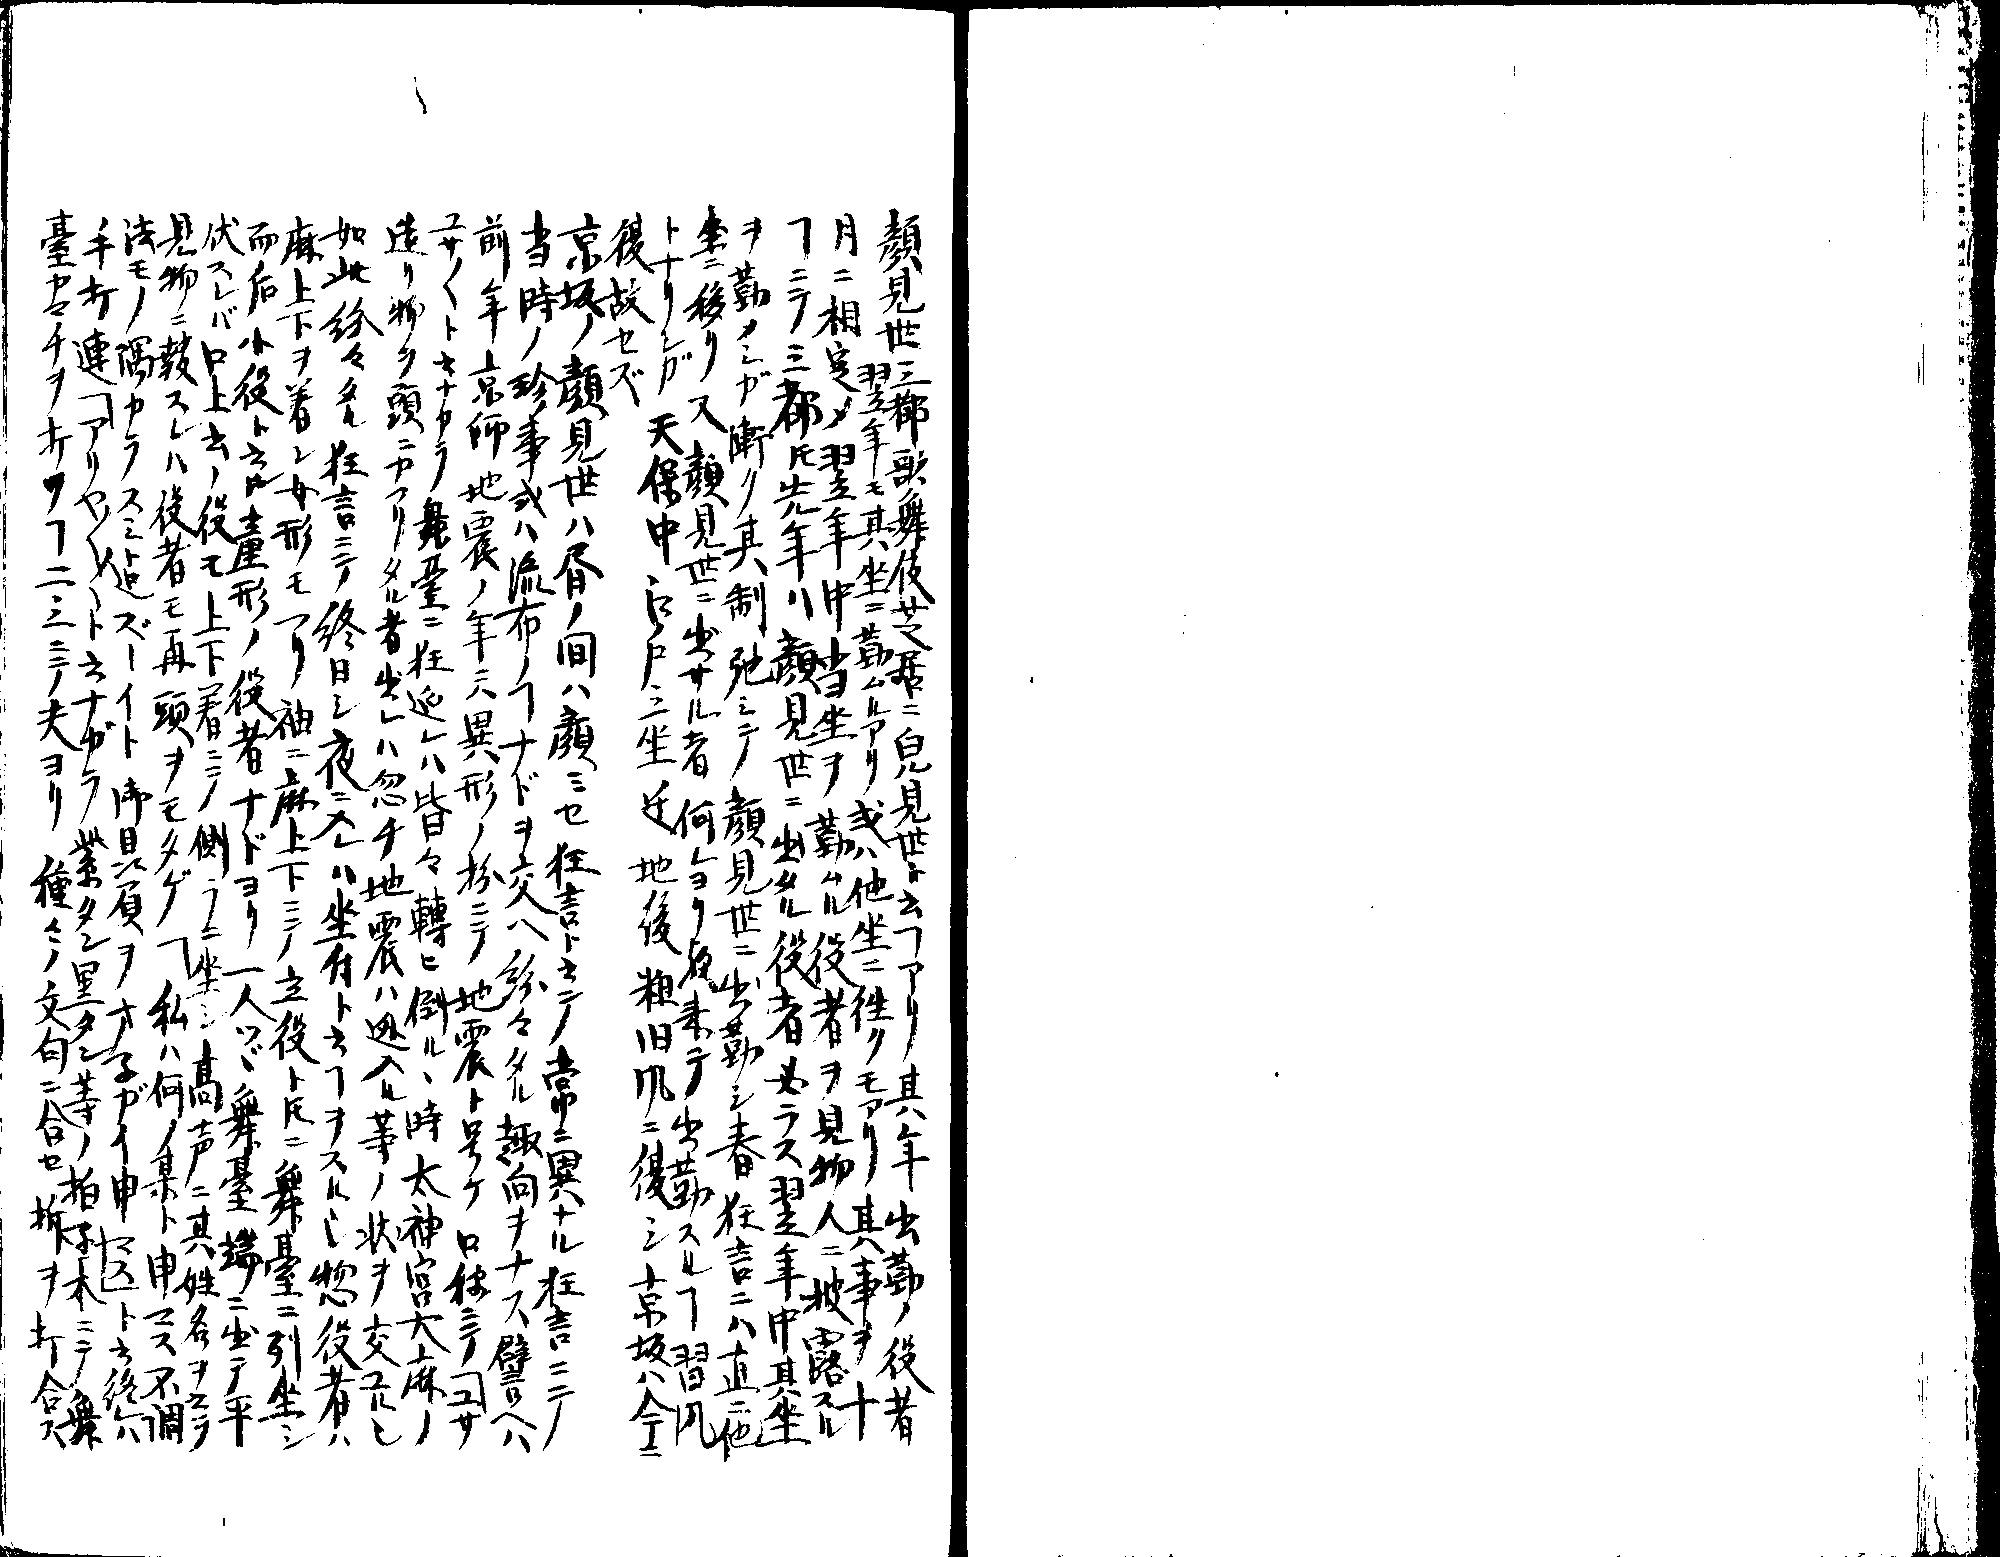 顔見世三都歌舞伎芝居ニ皃見世ト云ヿアリ其年出勤ノ役者
翌年モ其坐ニ勤ムルアリ或ハ他坐ニ往クモアリ其事ヲ十
月ニ相定メ翌年中当坐ヲ勤ムル役者ヲ見物人ニ披露スル
ヿニテ三都トモ先年ハ顔見世ニ出タル役者必ラス翌年中其坐
ヲ勤メシガ漸ク其制弛ミテ顔見世ニ出勤シ春狂言ニハ直ニ他
坐ニ移リ又顔見世ニ出サル者何レヨリ来テ出勤スルヿ習風
トナリシガ天保中江戸三坐迁地後粗旧風ニ復シ京坂ハ今ニ
復故セズ
京坂ノ顔見世ハ昼ノ間ハ顔ミセ狂言ト云テ常ニ異ナル狂言ニテ
当時ノ珍事或ハ流布ノヿナドヲ交ヘ紛々タル趣向ヲナス譬ヘハ
前年京師地震ノ年ニハ異形ノ扮ニテ地震ト号ケ口稱ニテ「ユサ
ユサ〱ト云ナカラ舞臺ニ狂巡レハ皆々轉ヒ倒ル、時太神宮大麻ノ
造リ物ヲ頭ニカフリタル者出レハ忽チ地震ハ迯入ル等ノ状ヲ交ユルヒ
如此紛々タル狂言ニテ終日シ夜ニ入レハ坐付ト云ヿヲスル也惣役者ハ
麻上下ヲ着シ女形モフリ袖ニ麻上下ニテ立役トモニ舞臺ニ列坐シ
而后小役ト云トモ童形ノ役者ナドヨリ一人ツヽ舞臺端ニ出テ平
伏スレバ口上云ノ役モ上下着ニテ側ラニ坐シ高声ニ其姓名ヲ云テ
見物ニ報スレハ役者モ再頭ヲモタゲ「私ハ何ノ某ト申マス不調
法モノ隅カラスミト迠ズーイト御贔屓ヲ ガイ申 ト云終ハ
手打連「アリヤ〱〱ト云ナガラ紫タン黒タン等ノ拍子木ニテ舞
臺 チヲ打ヿ二三ニテ夫ヨリ種々ノ文句ニ合セ拆ヲ打合ス